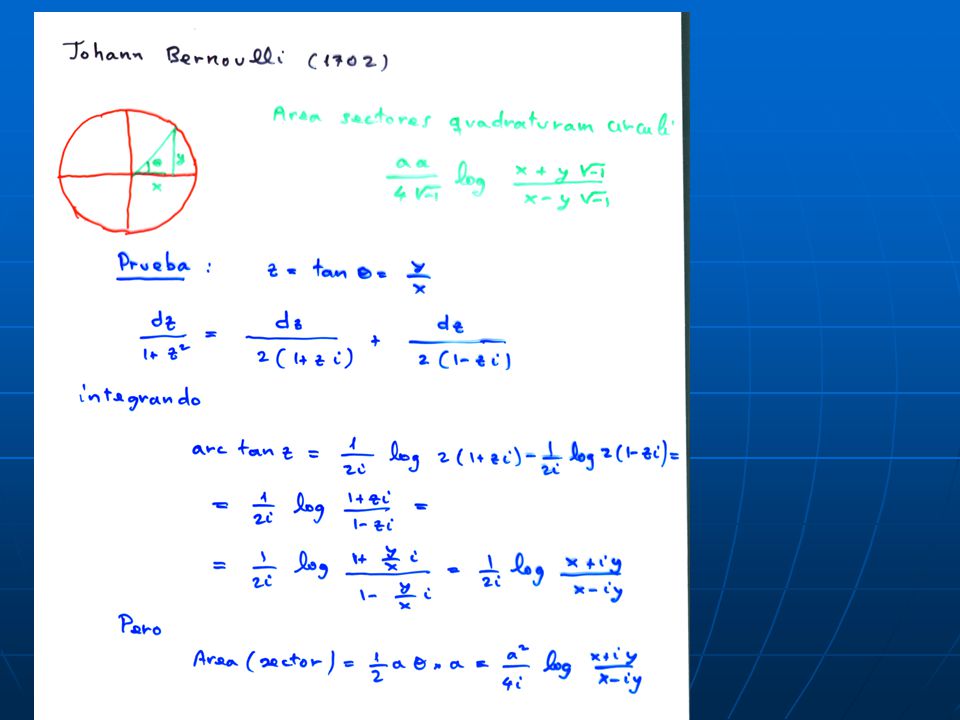 Johann Bernoulli (1702)
Area sectores quadraturam circuli
aa / 4√-1 log x + y √-1 / x - y √-1
θ y
x
Prueba : z = tan θ = y/x
dz / 1+ z² = dz / 2(1+ z i) + dz / 2(1- z i)
integrando
arc tan z = 1/2i log 2(1+zi) - 1/2i log 2(1-zi) =
= 1/2i log 1+zi / 1-zi =
= 1/2i log 1+ y/x i / 1- y/x i = 1/2i log x+iy / x-iy
Pero
Area (sector) = 1/2 a θ · a = a²/4i log x+iy / x-iy